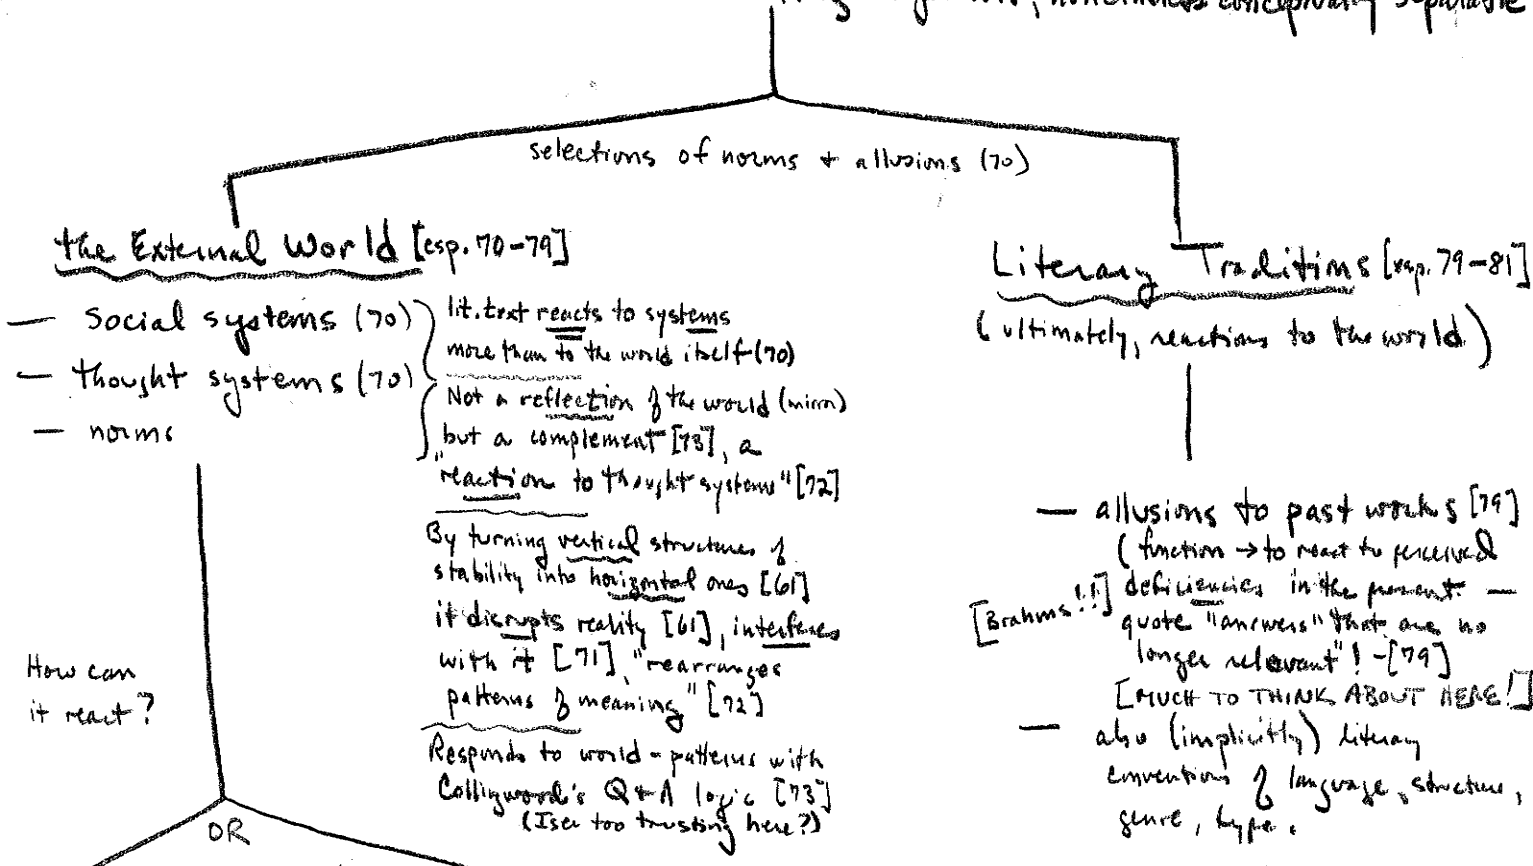 nonetheless conceptually separable
selections of norms + allusions (70)
the External World [esp. 70-79]
— Social systems (70)
— thought systems (70)
— norms
lit. text reacts to systems
more than to the world itself (70)
Not a reflection of the world (mirror)
but a complement [73], a
"reaction to thought systems" [72]
By turning vertical structures of
stability into horizontal ones [61]
it disrupts reality [61], interferes
with it [71], "rearranges
patterns of meaning" [72]
Responds to world-patterns with
Collingwood's Q + A logic [73]
(Iser too trusting here?)
How can
it react?
OR
Literary Traditions [esp. 79-81]
(ultimately, reactions to the world)
— allusions to past works [79]
(function → to react to perceived
deficiencies in the present —
[Brahms!!]
quote "answers" that are no
longer relevant"! -[79]
[MUCH TO THINK ABOUT HERE!]
— also (implicitly) literary
conventions of language, structure,
genre, type.